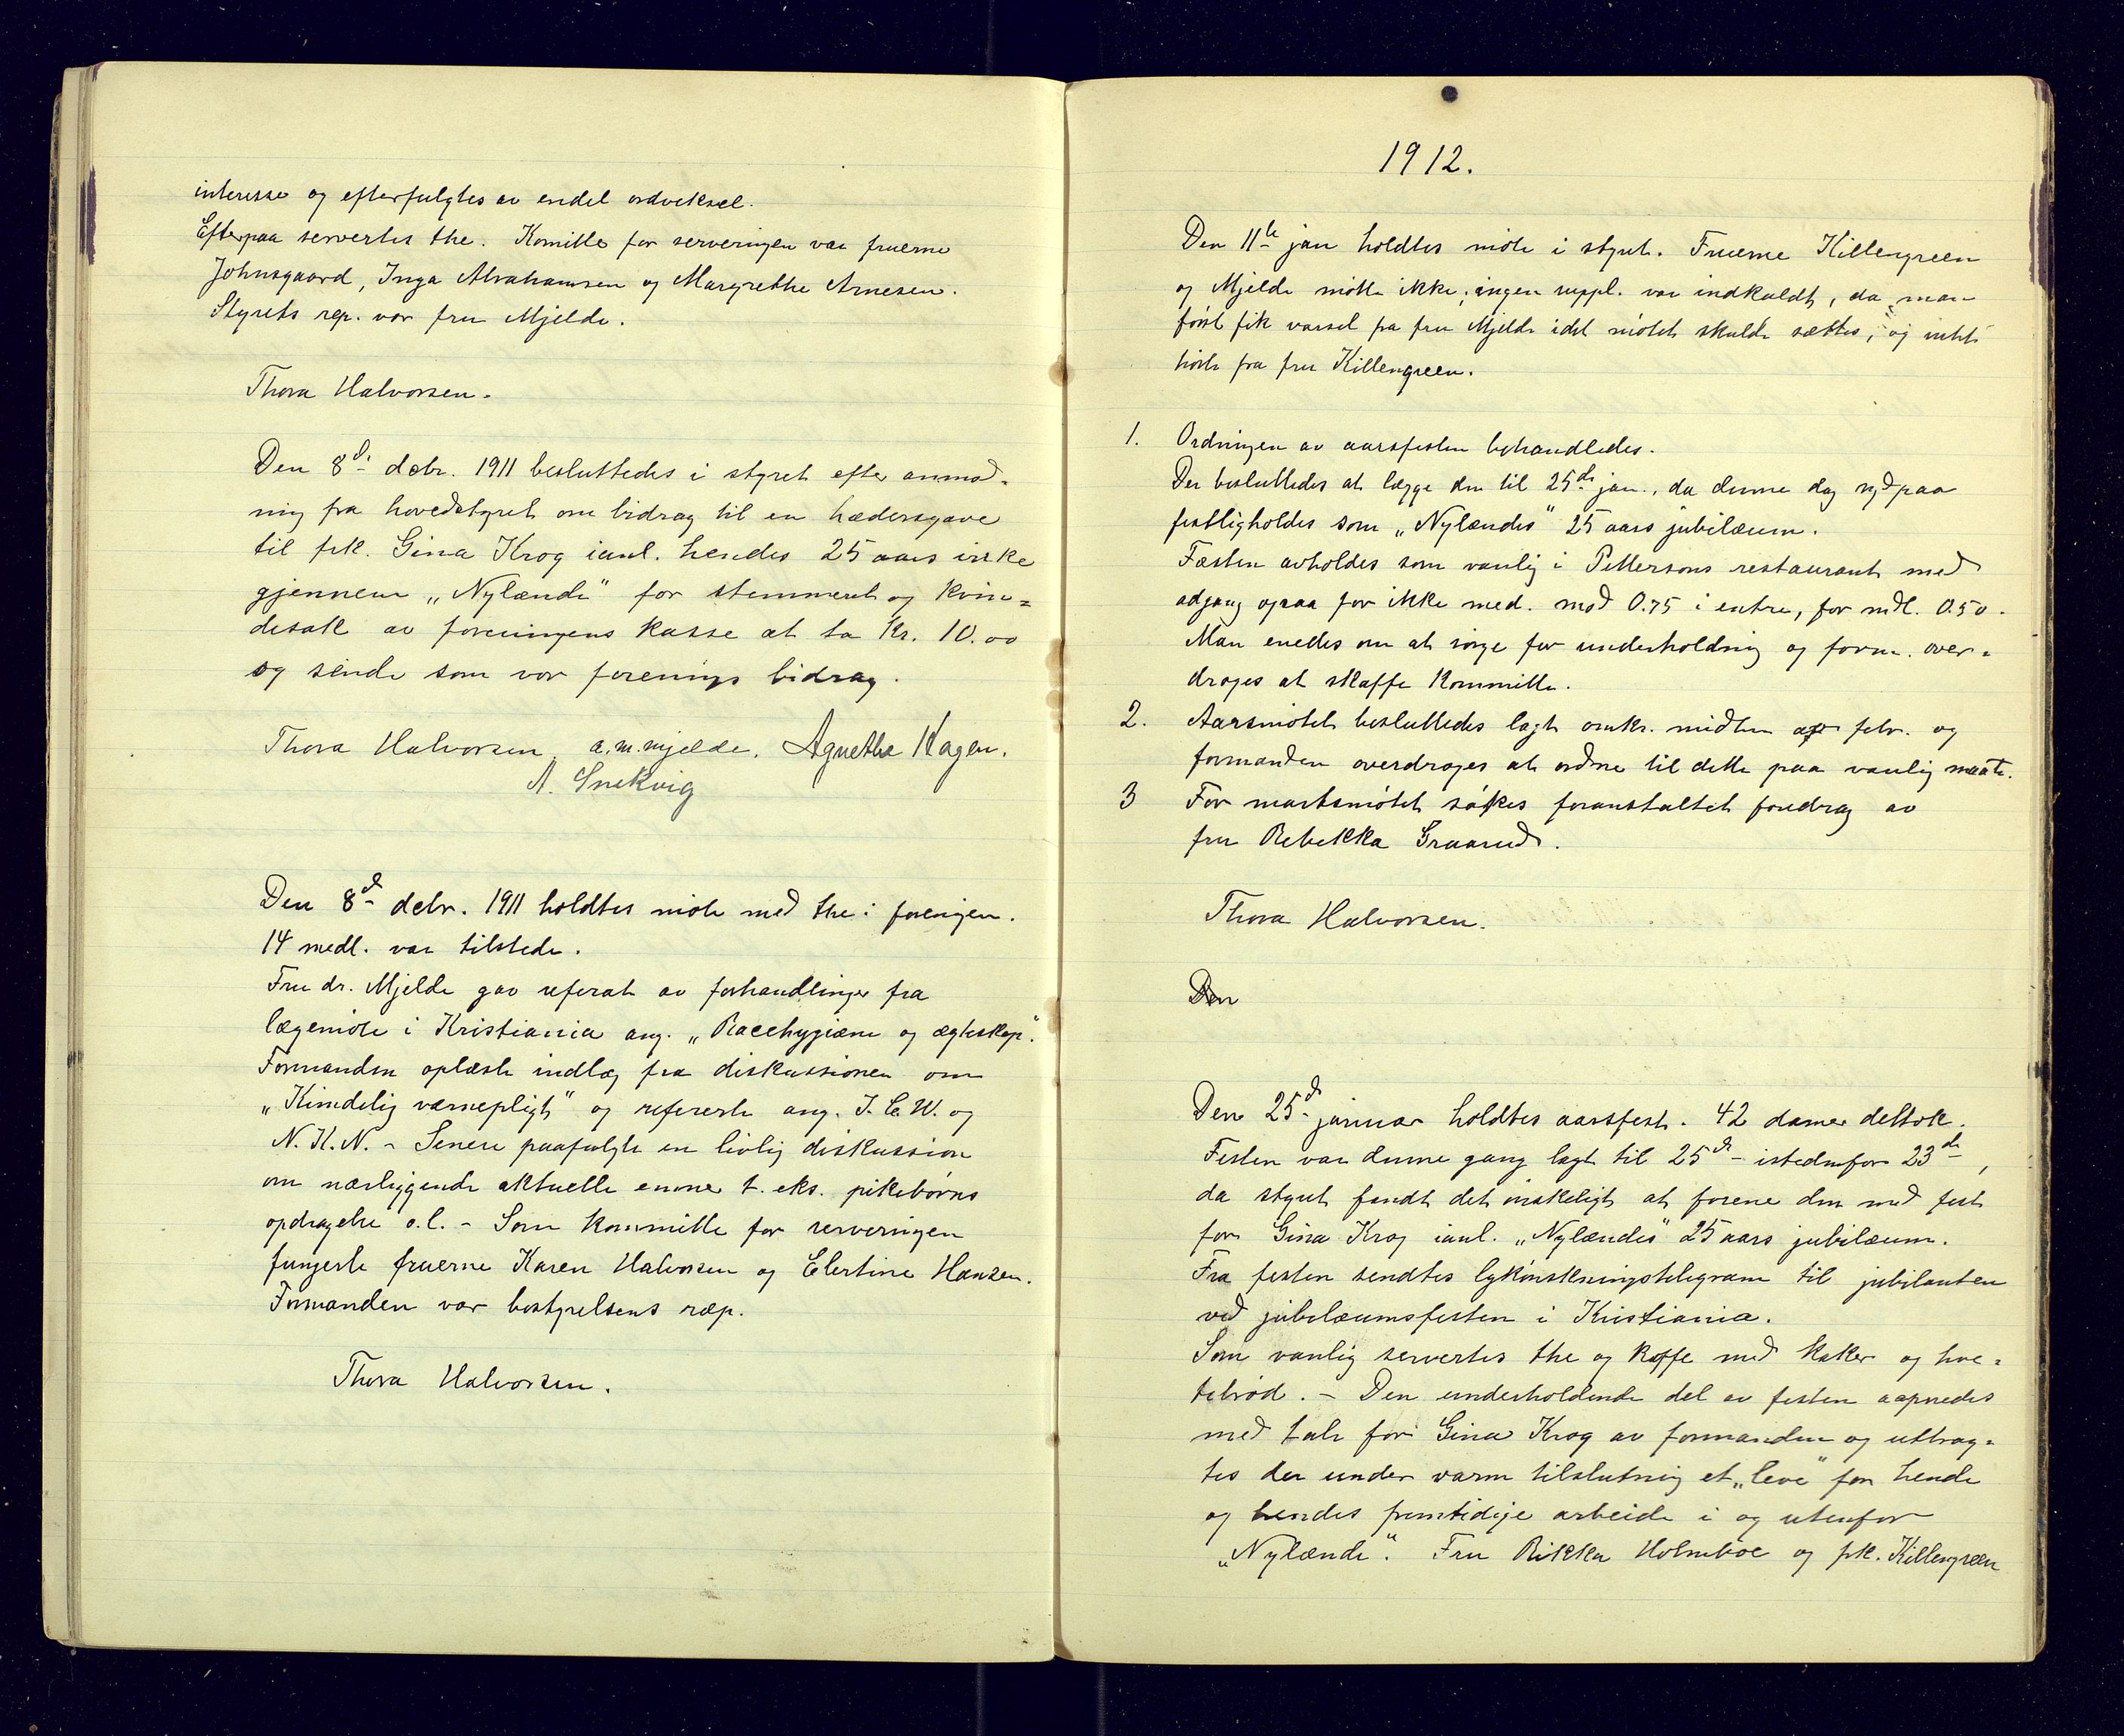 interesse og efterfulgtes av endel ordveksel.
Efterpaa servertes the. Komitte for serveringen var fruerne
Johnsgaard, Inga Abrahamsen og Margrethe Arnesen.
Styrets rep. var fru Mjelde.
Thora Halvorsen.
Den 8de debr. 1911 besluttedes i styret efter anmod-
ning fra hovedstyret om bidrag til en hædersgave
til frk. Gina Krog ianl. hendes 25 aars virke
gjennem „Nylænde" for stemmeret og kvin-
desak av foreningens kasse at ta kr. 10.00
og sende som vor forenings bidrag.
Thora Halvorsen, a.m. mjelde. Agnethe Hagen.
A. Snekvig
Den 8d debr. 1911 holdtes møte med the i foreningen.
14 medl. var tilstede.
Fru dr. Mjelde gav referat av forhandlinger fra
lægemøte i Kristiania ang. „Racehygiæne og ægteskap".
Formanden oplæste indlæg fra diskussionen om
„Kvindelig værnepligt" og refererte ang. I. C. W. og
N. K. N. - Senere paafulgte en livlig diskussion
om nærliggende aktuelle emner t. eks. pikebørns
opdragelse o. l. - Som kommitte for serveringen
fungerte fruerne Karen Halvorsen og Elertine Hansen.
Formanden var bestyrelsens ræp.
Thora Halvorsen.
1912.
Den 11te jan holdtes møte i styret. Fruerne Killengreen
og Mjelde møtte ikke; ingen suppl. var indkaldt, da man
først fik varsel fra fru Mjelde idet møtet skulde sættes, og intet
hørte fra fru Killengreen.
1. Ordningen av aarsfesten behandledes.
Der besluttedes at lægge den til 25de jan., da denne dag sydpaa
festligholdes som „Nylændes" 25 aars jubilæum.
Festen avholdes som vanlig i Pettersons restaurant med
adgang ogsaa for ikke med. mod 0.75 i entre, for mdl. 0.50.
Man enedes om at sørge for underholdning og form. over-
droges at skaffe kommitte.
2. Aarsmøtet besluttedes lagt omkr. midten av febr. og
formanden overdroges at ordne til dette paa vanlig maate.
3 For martsmøtet søkes foranstaltet foredrag av
fru Rebekka Graarud.
Thora Halvorsen.
Den
Den 25d januar holdtes aarsfest. 42 damer deltok.
Festen var denne gang lagt til 25de istedenfor 23de,
da styret fandt det ønskeligt at forene den med fest
for Gina Krog ianl. „Nylændes" 25 aars jubilæum.
Fra festen sendtes lykønskningstelegram til jubilanten
ved jubilæumsfesten i Kristiania.
Som vanlig servertes the og kaffe med kaker og hve-
tebrød. - Den underholdende del av festen aapnedes
med tale for Gina Krog av formanden og utbrag-
tes der under varm tilslutning et „leve" for hende
og hendes fremtidige arbeide i og utenfor
„Nylænde". Fru Rikka Holmboe og frk. Killengreen